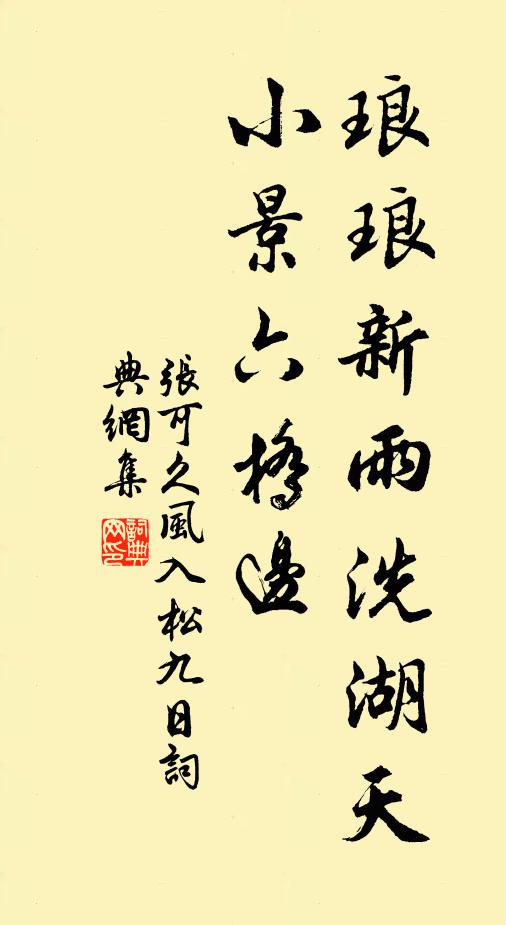 琅琅新雨洗湖天
小景六橋邊
張可久風入松九日詞
典網集
詞典
网印